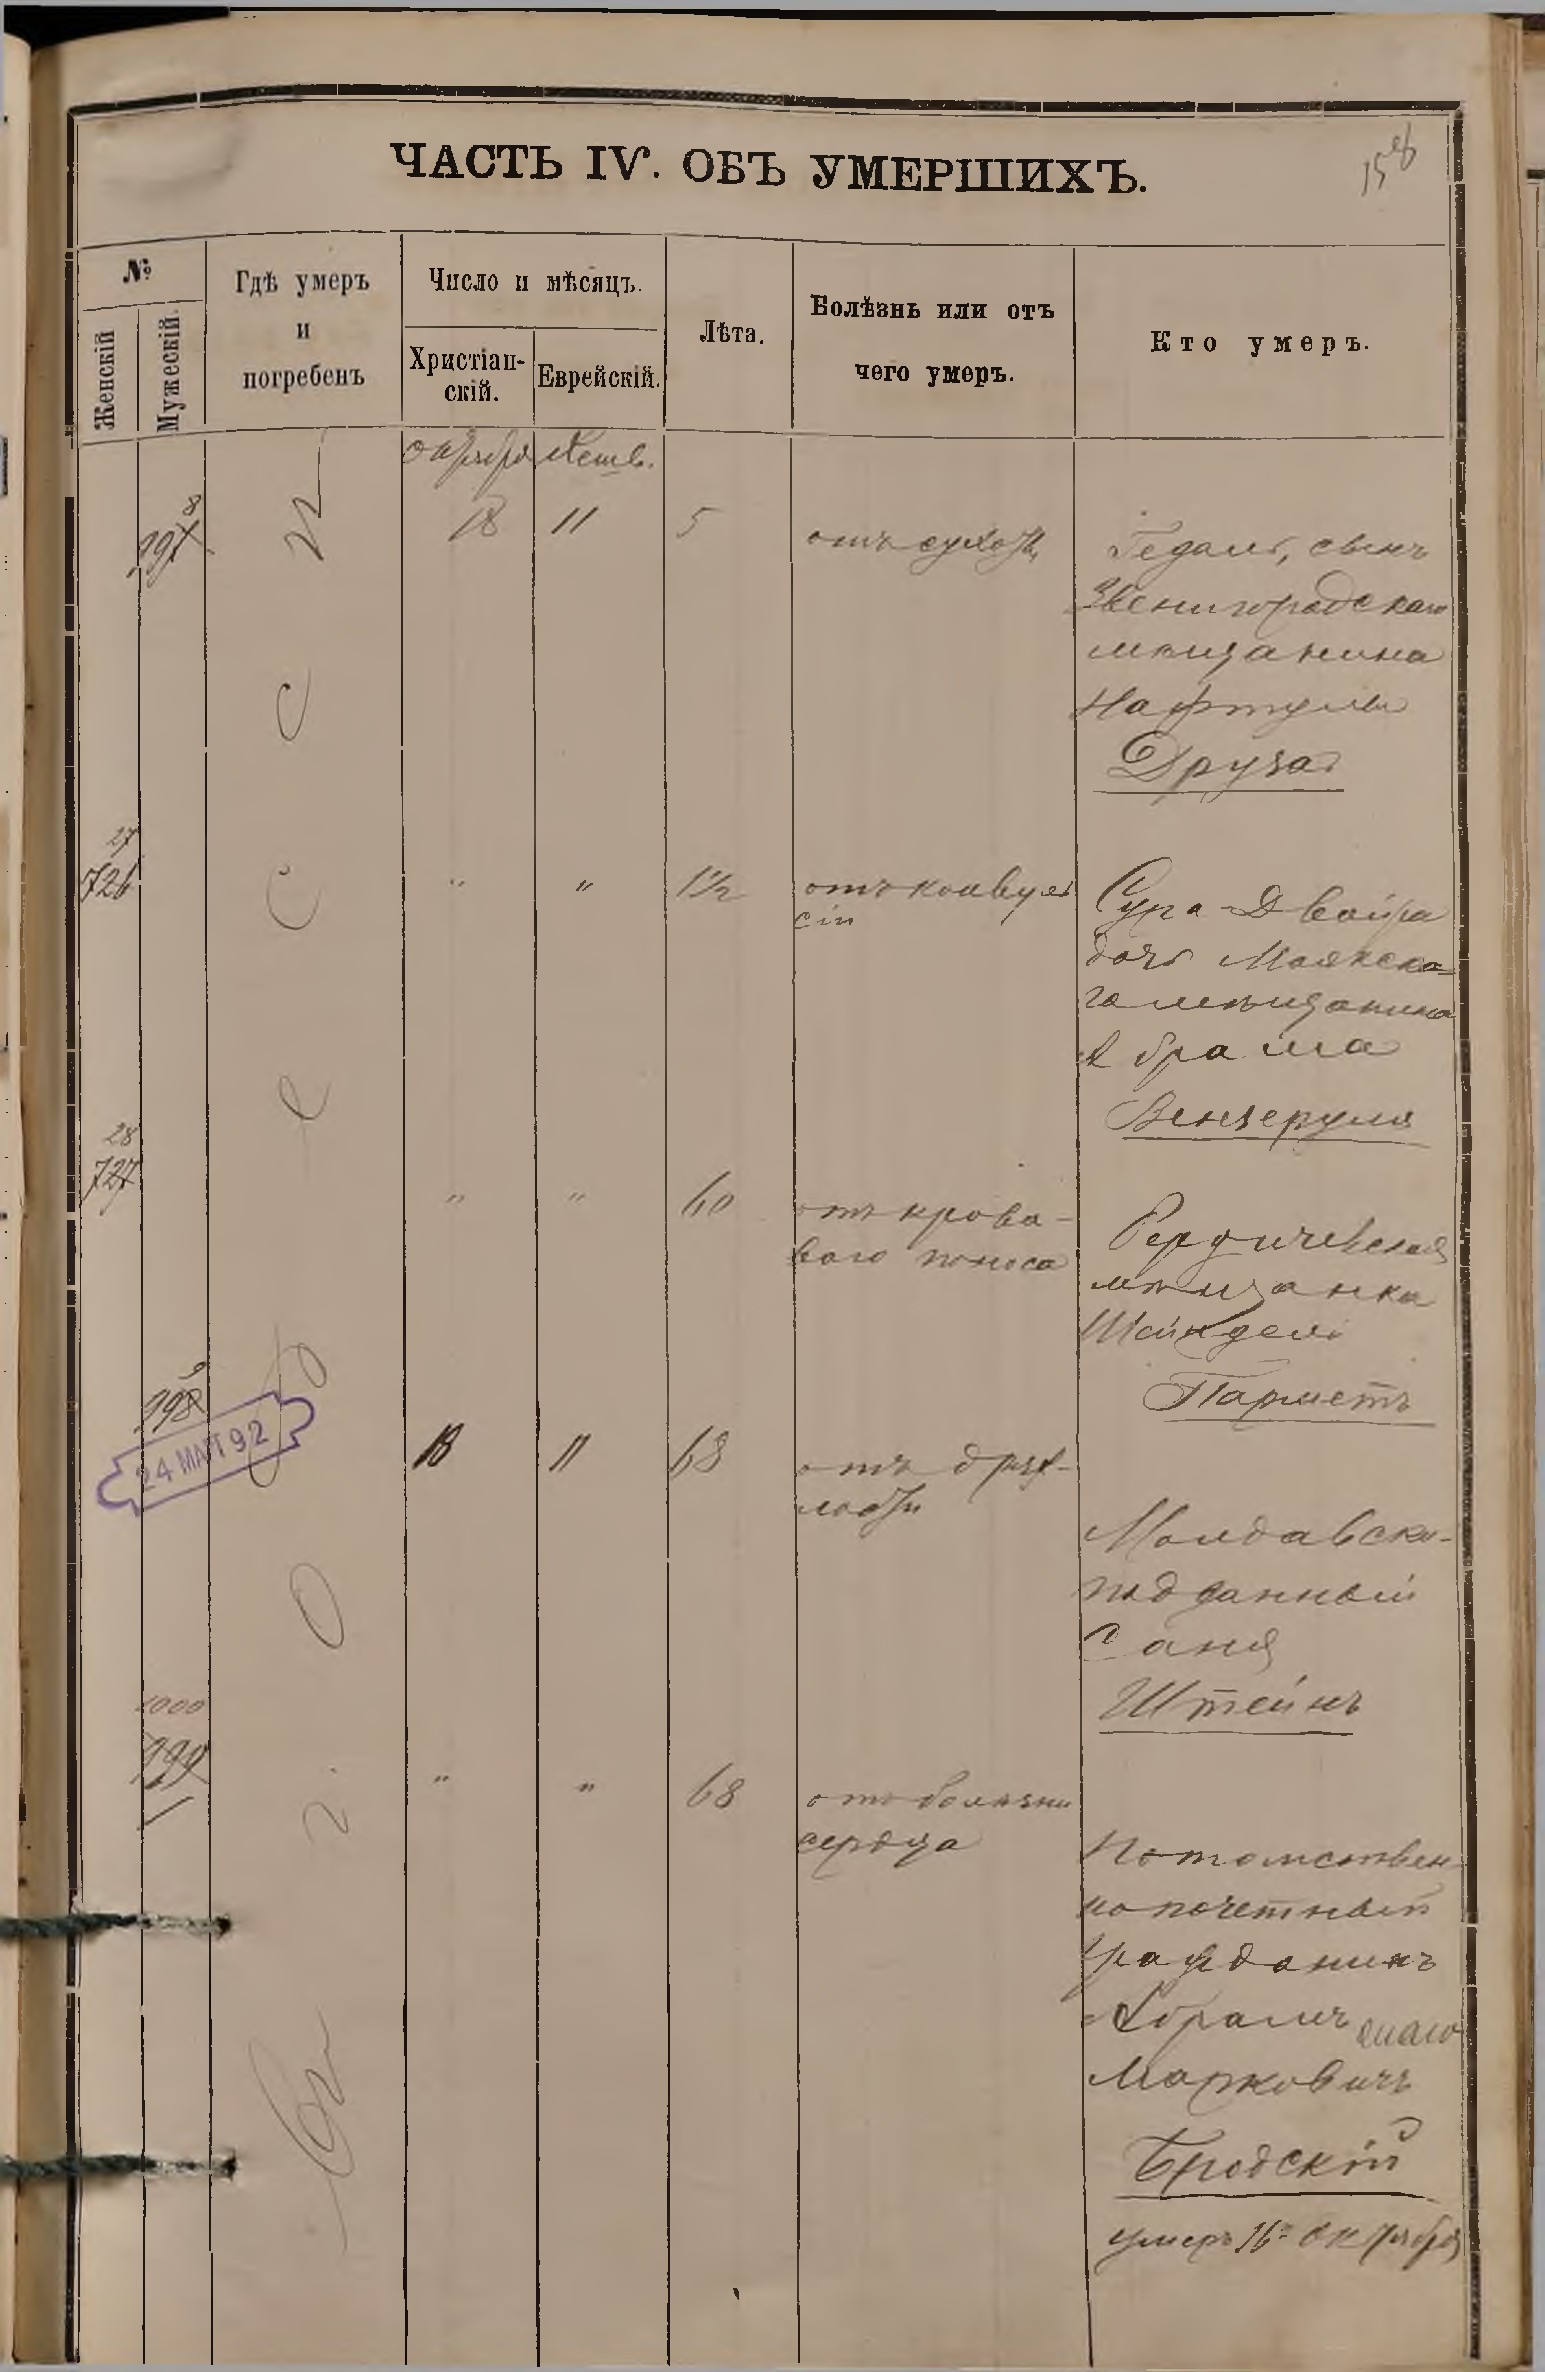 ЧАСТЬ IV. ОБЪ УМЕРШИХЪ.
158
№
Женскій
Мужескій.
Гдѣ умеръ
и
погребенъ
Число и мѣсяцъ.
Христіан-
скій.
Еврейскій.
Лѣта.
Болѣзнь или отъ
чего умеръ.
Кто умеръ.
октября Хешв.
8
997 18 11 5 отъ сухотъ
Гедаль, сынъ
Звенигородскаго
мѣщанина
Нафтулы
Друза
27
726 " " 1½ отъ конвуль
сіи
Сура-Двойра
дочь Маякска-
го мѣщанина
Абрама
Вензеруля
28
727 " " 60 отъ крова-
ваго поноса
Бердичевская
мѣщанка
Шейндель
Парметъ
9
998 18 11 68 отъ дрях-
лости
24 МАЯ 92
Молдавско-
подданный
Саня
Штейнъ
1000
999 " " 68 отъ болѣзни
сердца
Потомствен-
но почетный
гражданинъ
Абрамъ
Марковичъ
Бродскій
умеръ 16го октября
въ г. Одессѣ